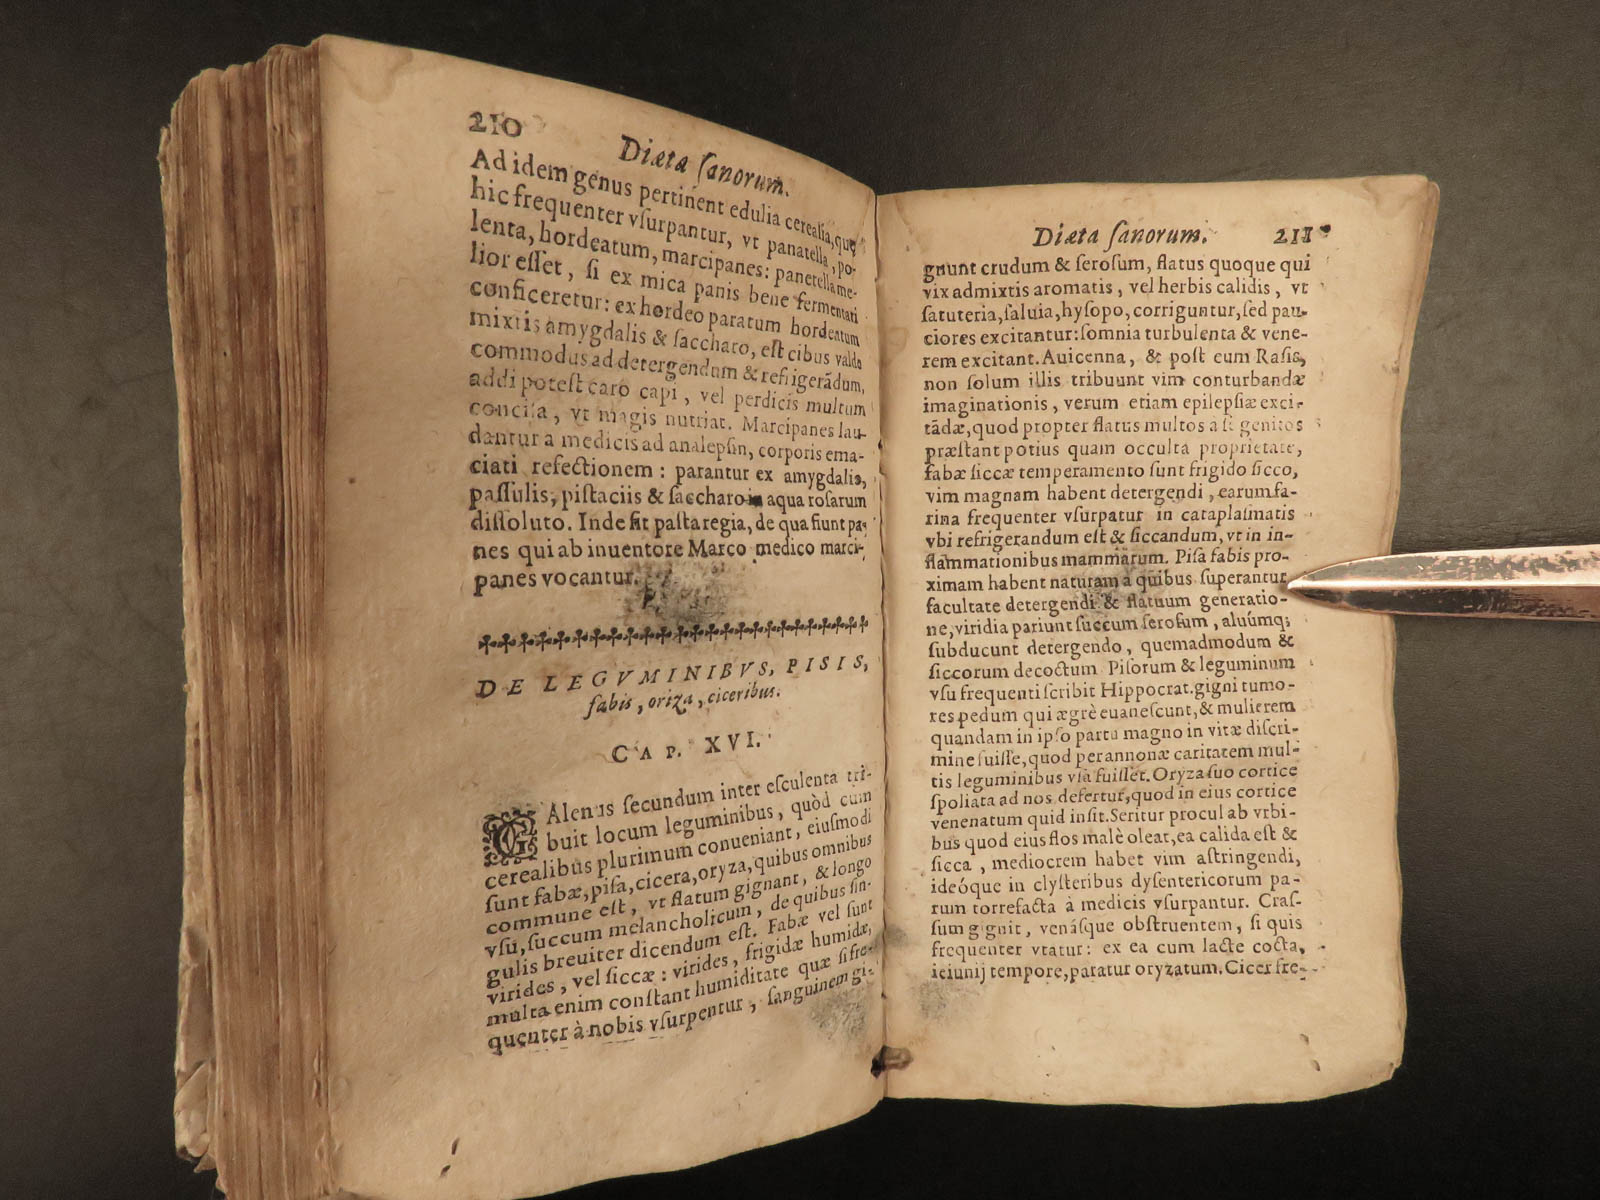 210
Diæta ſanorum.
Ad idem genus pertinent edulia cerealia, quę
hic frequenter vſurpantur, vt panatella, po-
lenta, hordeatum, marcipanes: panetella me-
lior eſſet, ſi ex mica panis bene fermentati
conficeretur: ex hordeo paratum hordeatum
mixtis amygdalis & ſaccharo, eſt cibus valde
commodus ad detergendum & refrigerãdum,
addi poteſt caro capi, vel perdicis multum
conciſa, vt magis nutriat. Marcipanes lau-
dantur a medicis ad analepſin, corporis ema-
ciati refectionem: parantur ex amygdalis,
paſſulis, piſtaciis & ſaccharo in aqua roſarum
diſſoluto. Inde fit paſta regia, de qua fiunt pa-
nes qui ab inuentore Marco medico marci-
panes vocantur.
DE LEGVMINIBVS, PISIS,
fabis, oriza, ciceribus.
CAP. XVI.
GAlenus ſecundum inter eſculenta tri-
buit locum leguminibus, quòd cum
cerealibus plurimum conueniant, eiuſmodi
ſunt fabæ, piſa, cicera, oryza, quibus omnibus
commune eſt, vt flatum gignant, & longo
vſu, ſuccum melancholicum, de quibus ſin-
gulis breuiter dicendum eſt. Fabæ vel ſunt
virides, vel ſiccæ: virides, frigidæ humidæ,
multa enim conſtant humiditate quæ ſi fre-
quenter à nobis vſurpentur, ſanguinem gi-
Diæta ſanorum. 211
gnunt crudum & ſeroſum, flatus quoque qui
vix admixtis aromatis, vel herbis calidis, vt
ſatuteria, ſaluia, hyſopo, corriguntur, ſed pau-
ciores excitantur: ſomnia turbulenta & vene-
rem excitant. Auicenna, & poſt eum Raſis,
non ſolum illis tribuunt vim conturbandæ
imaginationis, verum etiam epilepſiæ exci-
tãdæ, quod propter flatus multos a ſe genitos
præſtant potius quam occulta proprietate,
fabæ ſiccæ temperamento ſunt frigido ſicco,
vim magnam habent detergendi, earum fa-
rina frequenter vſurpatur in cataplaſmatis
vbi refrigerandum eſt & ſiccandum, vt in in-
flammationibus mammarum. Piſa fabis pro-
ximam habent naturam à quibus ſuperantur
facultate detergendi & flatuum generatio-
ne, viridia pariunt ſuccum ſeroſum, aluũmq;
ſubducunt detergendo, quemadmodum &
ſiccorum decoctum. Piſorum & leguminum
vſu frequenti ſcribit Hippocrat. gigni tumo-
res pedum qui ægrè euaneſcunt, & mulierem
quandam in ipſo partu magno in vitæ diſcri-
mine fuiſſe, quod per annonæ caritatem mul-
tis leguminibus vſa fuiſſet. Oryza ſuo cortice
ſpoliata ad nos defertur, quod in eius cortice
venenatum quid inſit. Seritur procul ab vrbi-
bus quod eius flos malè oleat, ea calida eſt &
ſicca, mediocrem habet vim aſtringendi,
ideóque in clyſteribus dyſentericorum pa-
rum torrefacta à medicis vſurpantur. Craſ-
ſum gignit, venáſque obſtruentem, ſi quis
frequenter vtatur: ex ea cum lacte cocta,
ieiunij tempore, paratur oryzatum. Cicer fre-